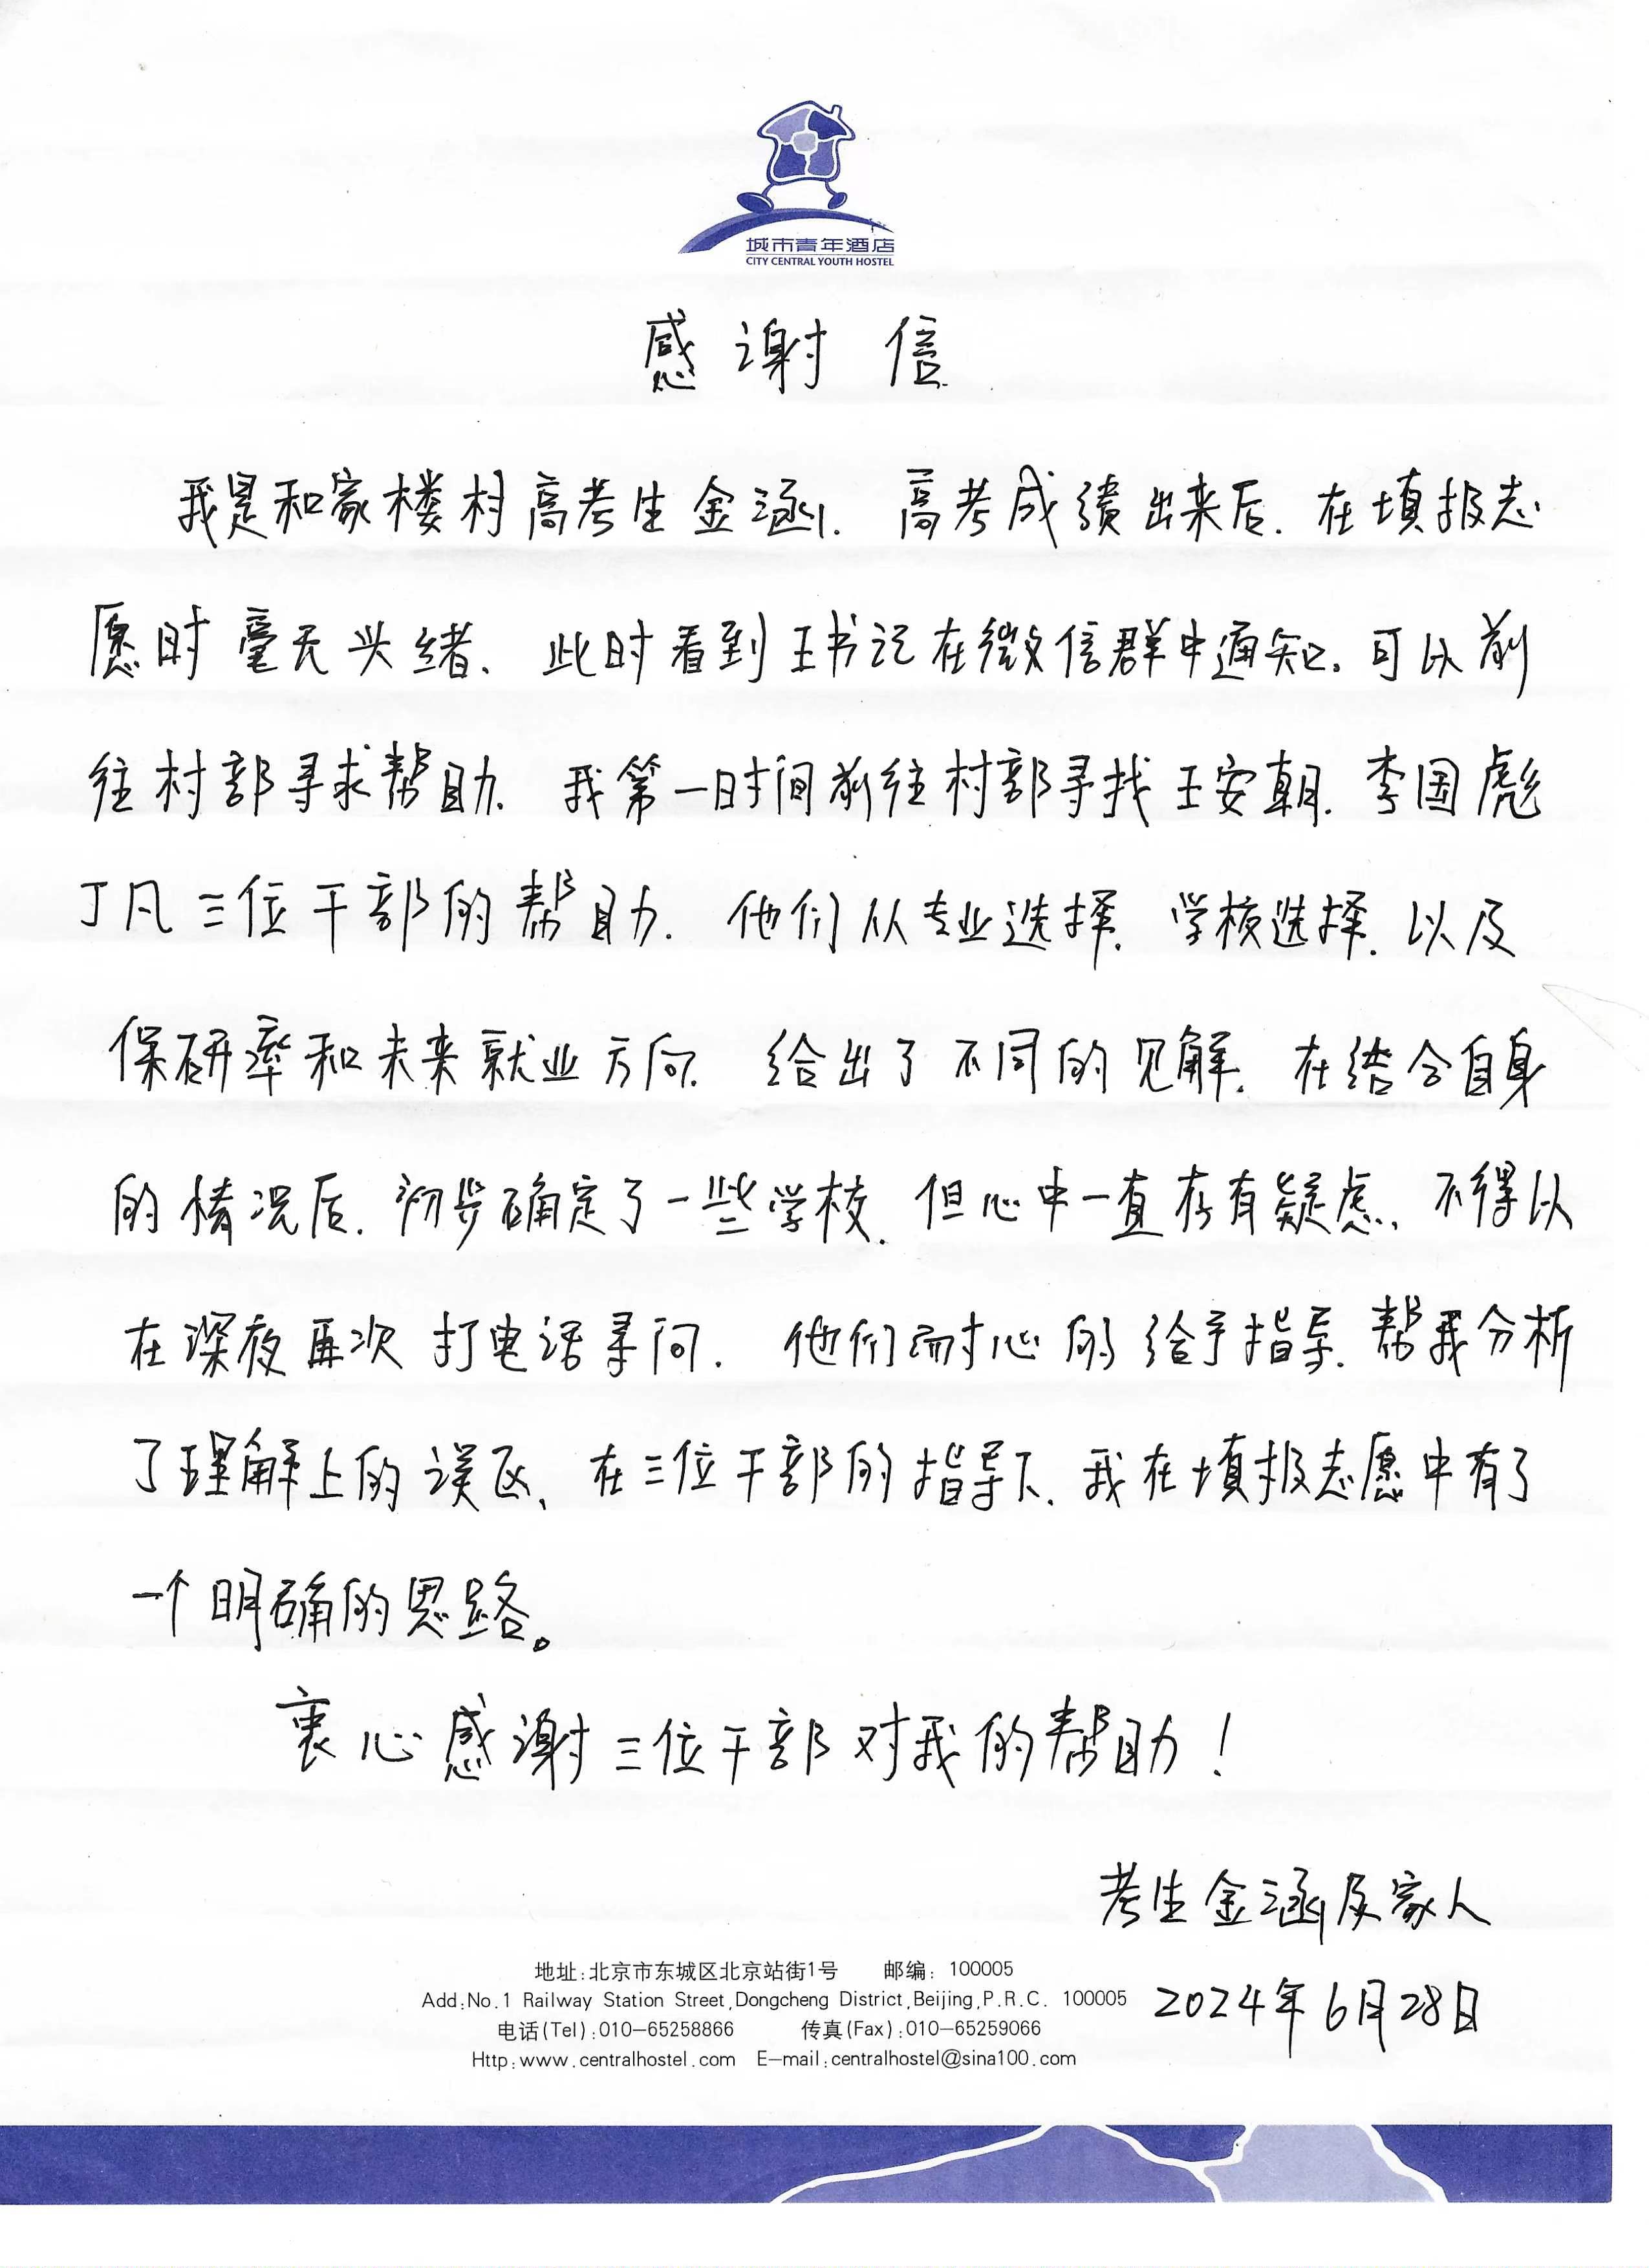 城市青年酒店
CITY CENTRAL YOUTH HOSTEL
感谢信
我是和家楼村高考生金涵. 高考成绩出来后. 在填报志
愿时毫无头绪、此时看到王书记在微信群中通知. 可以前
往村部寻求帮助. 我第一时间前往村部寻找王安朝. 李国彪
丁凡三位干部的帮助. 他们从专业选择. 学校选择. 以及
保研率和未来就业方向. 给出了不同的见解. 在结合自身
的情况后. 初步确定了一些学校. 但心中一直存有疑虑、不得以
在深夜再次打电话寻问. 他们耐心的给予指导. 帮我分析
了理解上的误区、在三位干部的指导下. 我在填报志愿中有了
一个明确的思路。
衷心感谢三位干部对我的帮助!
考生金涵及家人
2024年6月28日
地址:北京市东城区北京站街1号 邮编: 100005
Add:No.1 Railway Station Street,Dongcheng District,Beijing,P.R.C. 100005
电话(Tel):010-65258866 传真(Fax):010-65259066
Http:www.centralhostel.com E-mail:centralhostel@sina100.com